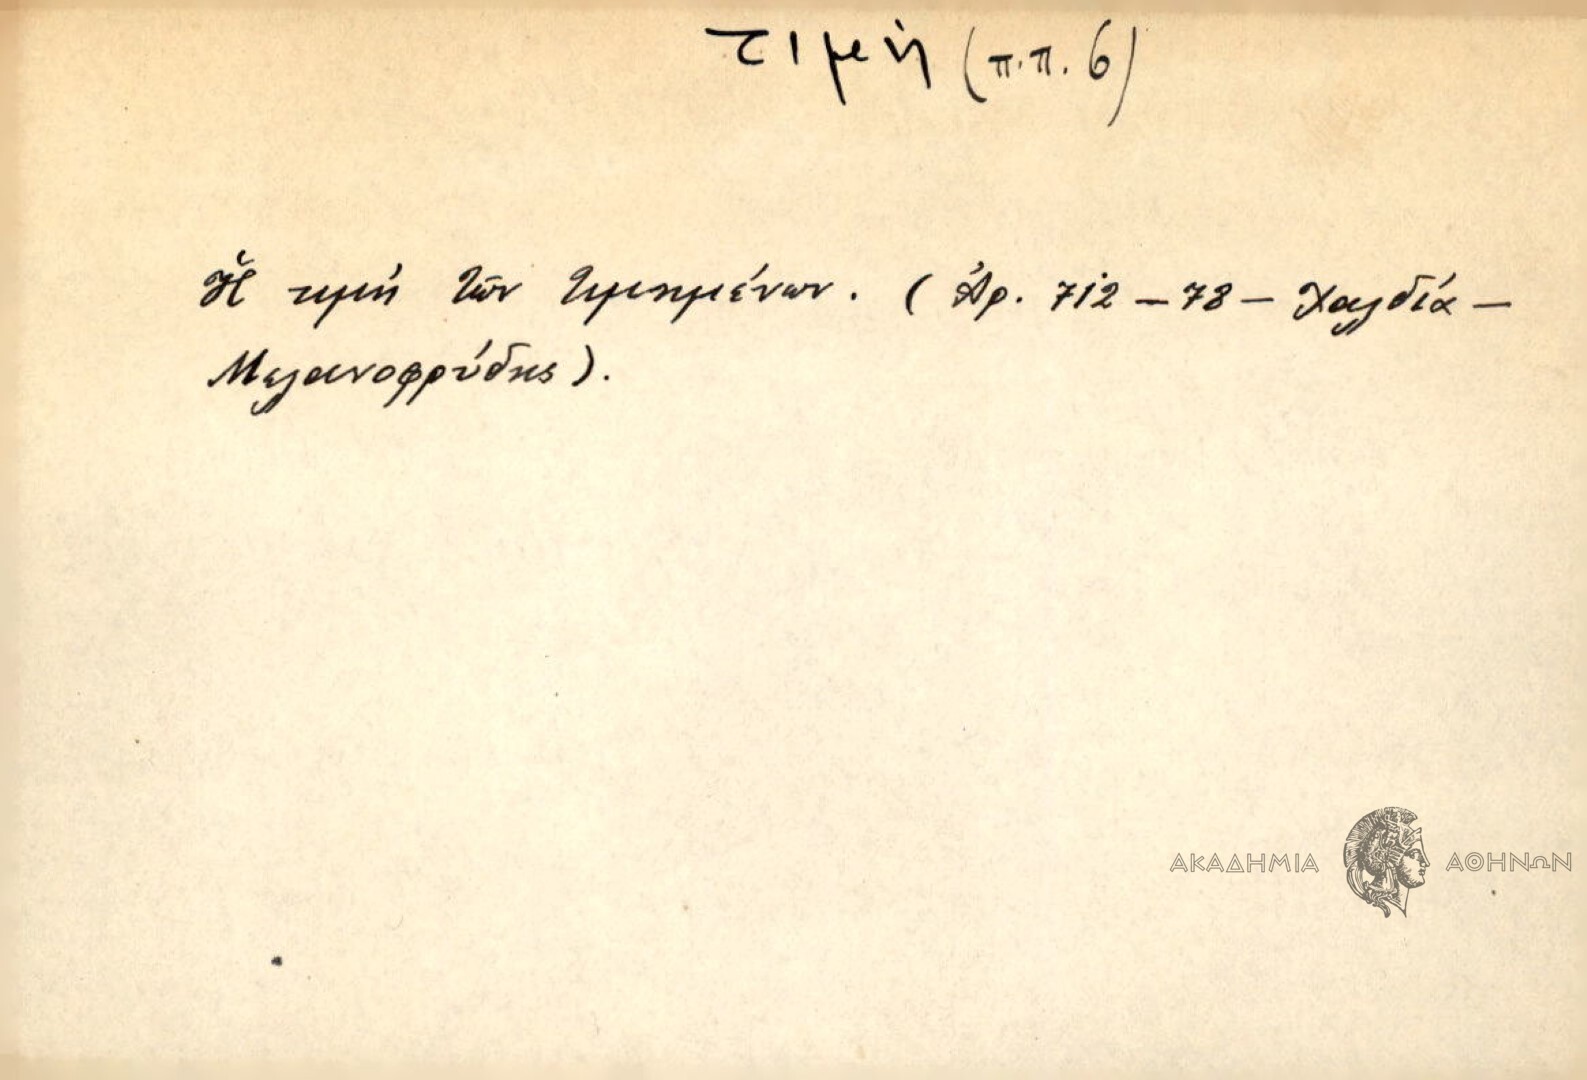 τιμή (π.π. 6)
Ἡ τιμή τῶν τιμημένων. (Ἀρ. 712 – 78 – Χαλδία –
Μελανοφρύδης).
ΑΚΑΔΗΜΙΑ ΑΘΗΝΩΝ